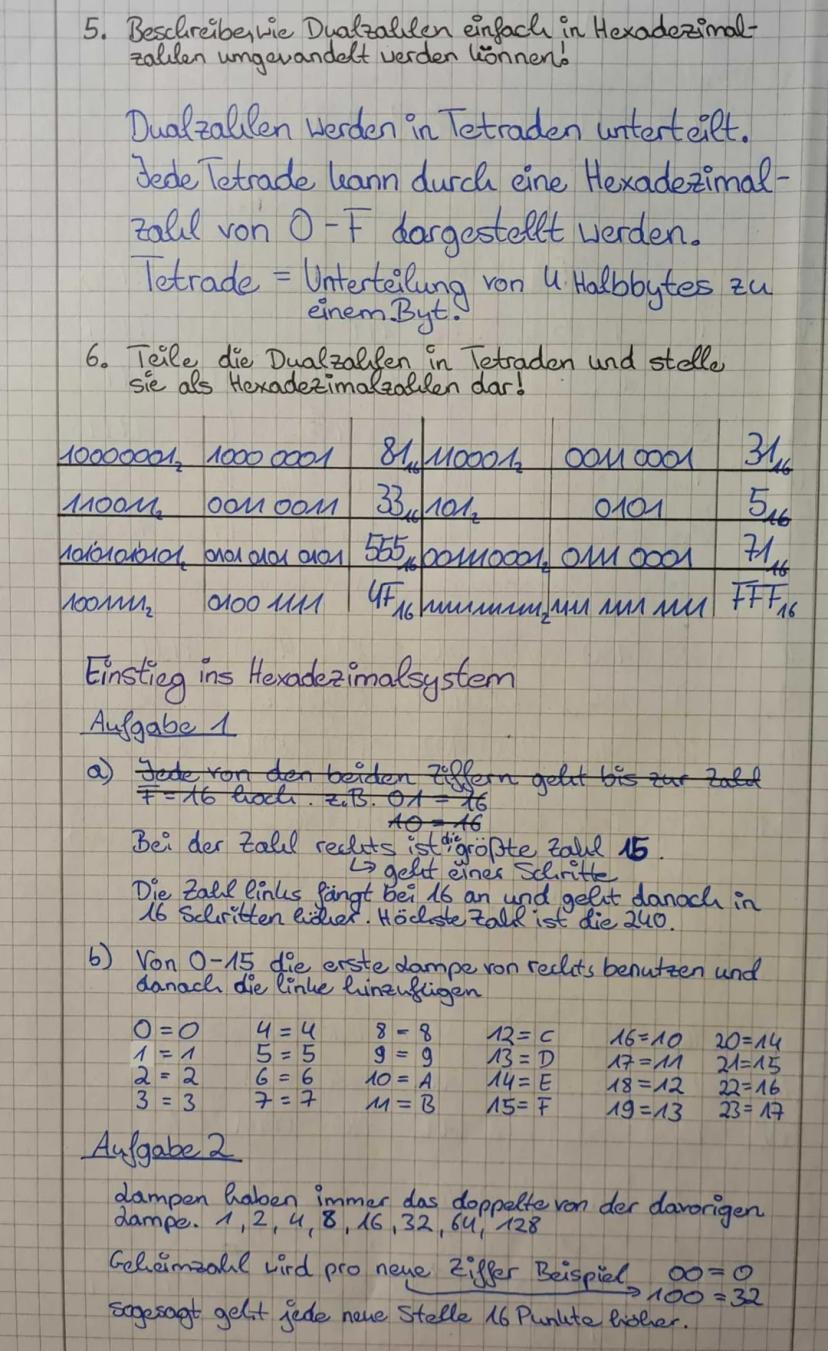 5. Beschreibe, wie Dualzahlen einfach in Hexadezimal-
zahlen umgewandelt werden können!
Dualzahlen werden in Tetraden unterteilt.
Jede Tetrade kann durch eine Hexadezimal-
zahl von 0-F dargestellt werden.
Tetrade = Unterteilung von 4 Halbbytes zu
einem Byt.
6. Teile die Dualzahlen in Tetraden und stelle
sie als Hexadezimalzahlen dar!
10000001₂ 1000 0001 81₁₆ 110001₂ 0011 0001 31₁₆
110011₂ 0011 0011 33₁₆ 101₂ 0101 5₁₆
10101010101₂ 0101 0101 0101 555₁₆ 001110001₂ 0111 0001 71₁₆
1001111₂ 0100 1111 4F₁₆ 111111111111₂ 1111 1111 1111 FFF₁₆
Einstieg ins Hexadezimalsystem
Aufgabe 1
a) Jede von den beiden Ziffern geht bis zur Zahl
F=16 hoch. z.B. 01 = 16
10 = 16
Bei der Zahl rechts ist die größte Zahl 15.
↳ geht einer Schritte
Die Zahl links fängt bei 16 an und geht danach in
16 Schritten höher. Höchste Zahl ist die 240.
b) Von 0-15 die erste Lampe von rechts benutzen und
danach die linke hinzufügen
0=0 4=4 8-8 12=C 16=10 20=14
1=1 5=5 9=9 13=D 17=11 21=15
2=2 6=6 10=A 14=E 18=12 22=16
3=3 7=7 11=B 15=F 19=13 23=17
Aufgabe 2
Lampen haben immer das doppelte von der davorigen
Lampe. 1, 2, 4, 8, 16, 32, 64, 128
Geheimzahl wird pro neue Ziffer Beispiel 00=0
→100=32
sogesagt geht jede neue Stelle 16 Punkte höher.